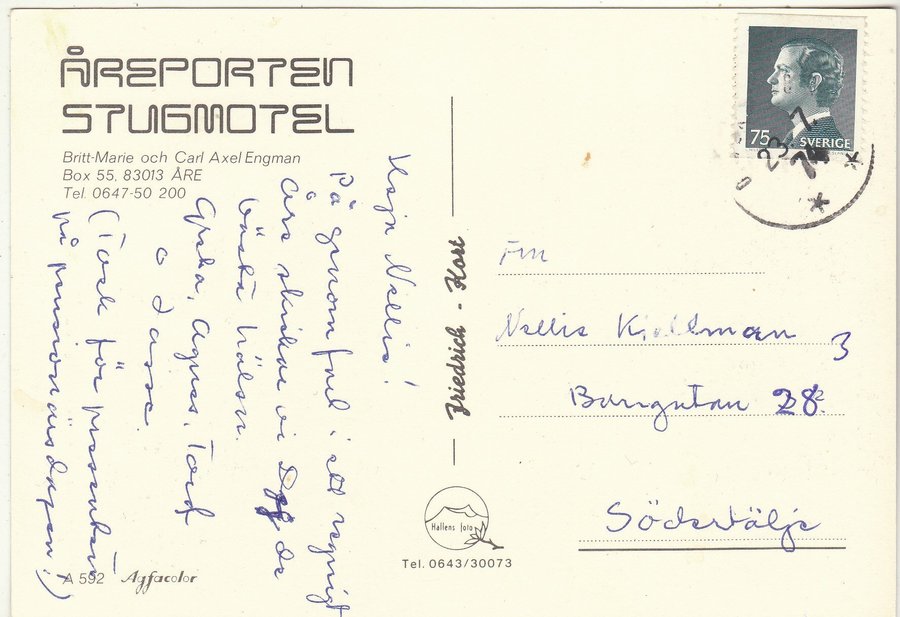 ÅREPORTEN
STUGMOTEL
Britt-Marie och Carl Axel Engman
Box 55, 83013 ÅRE
Tel. 0647-50 200
Hejn Nellie!
På genomfart i ett regnigt
Åre skickar vi Dig de
bästa hälsn.
Agnes, Tord
o Lasse.
(Tack för presenten
på pensionärsdagen!)
A 592 Agfacolor
Friedrich - Kort
Hallens foto
Tel. 0643/30073
75 SVERIGE
23.7.
Fru
Nellie Kjellman
3
Bangatan 28
Södertälje